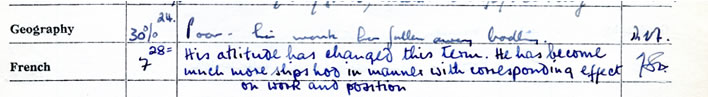 Geography 30% 24. Poor - his work has fallen away badly.
28=
French 7 His attitude has changed this term. He has become
much more slipshod in manner with corresponding effect
on work and position